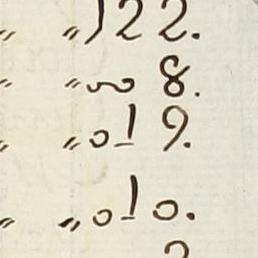 „ „ 122.
„ „ 008.
„ „ 019.
„ „ 010.